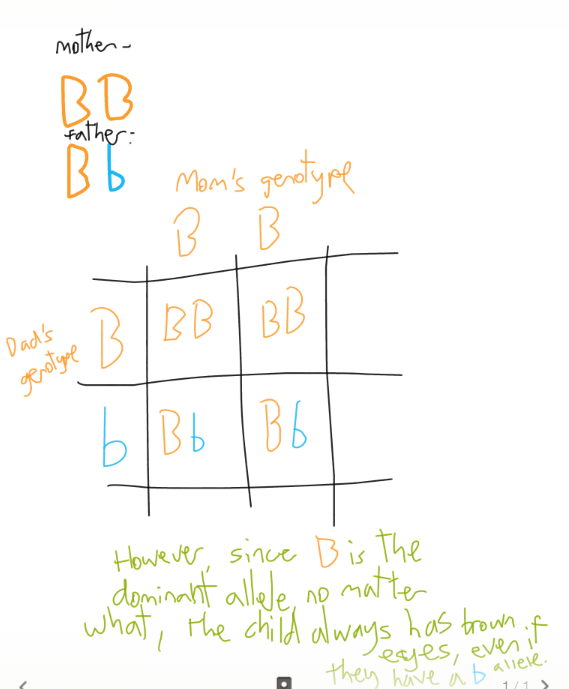 mother-
BB
father:
Bb
Mom's genotype
B B
Dad's
genotype
B BB BB
b Bb Bb
However, since B is the
dominant allele no matter
what, the child always has brown
eayes, even if
they have a b allele.
1 / 1